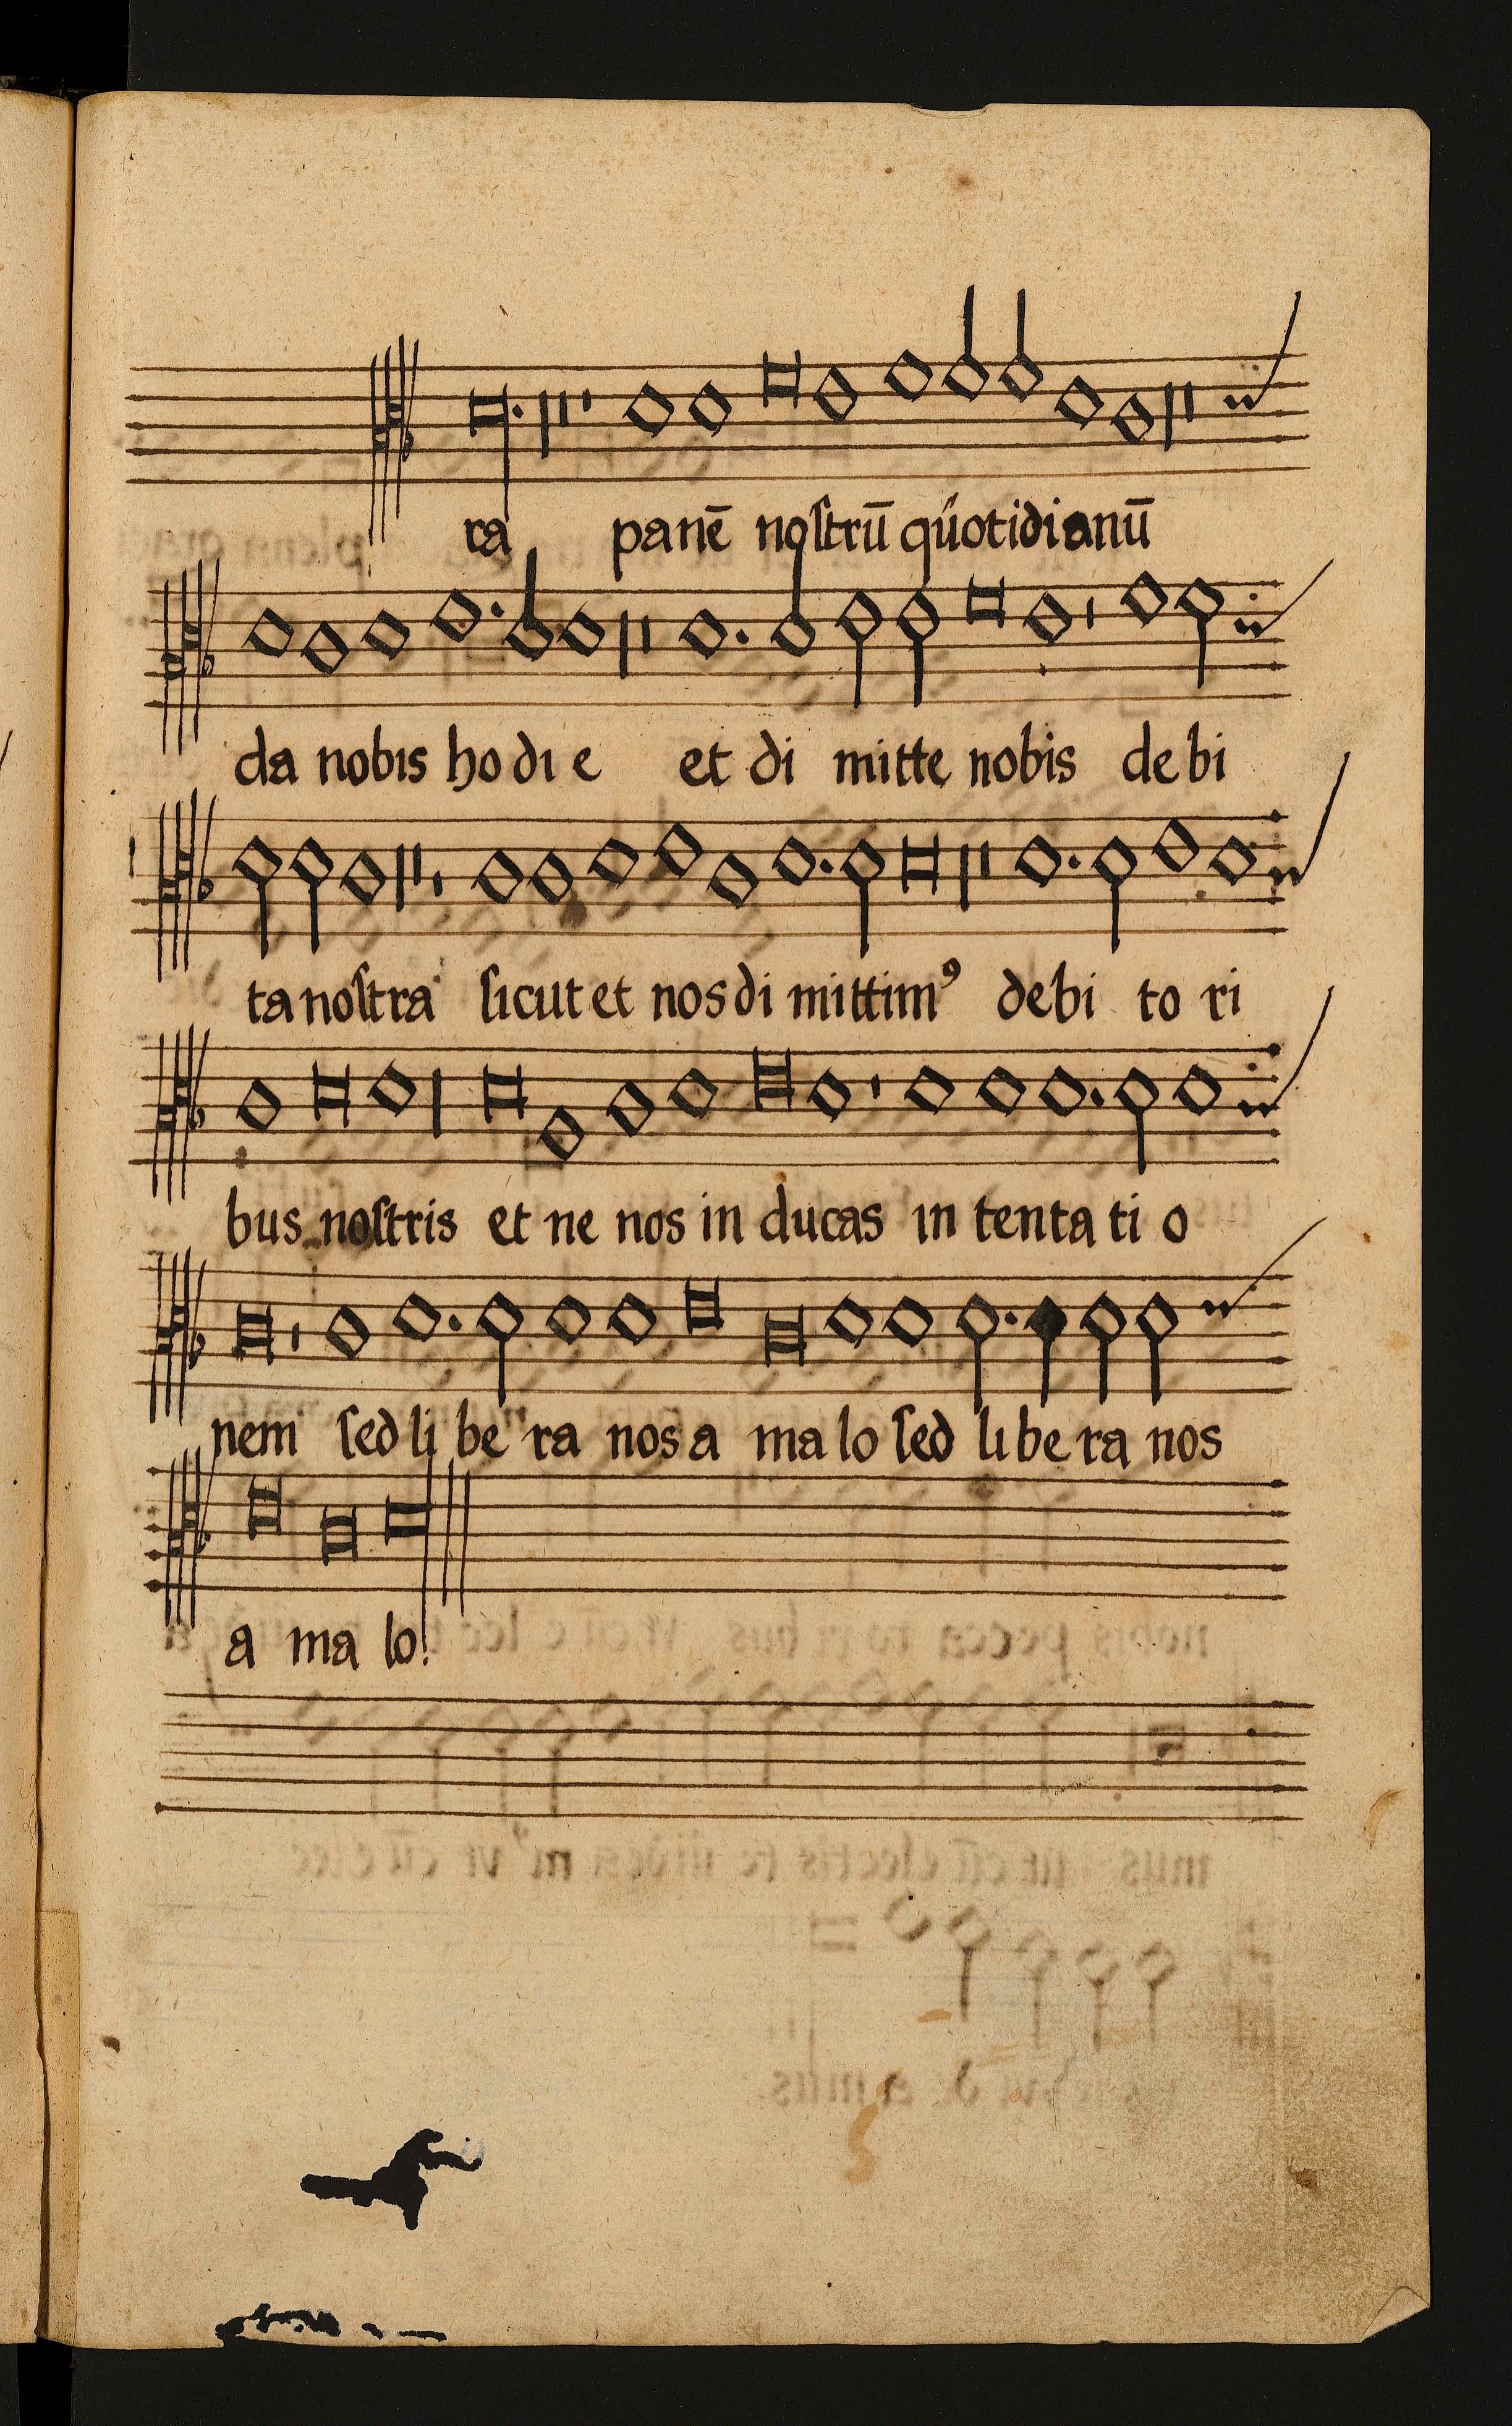 ra panē noſtrū quotidianū
da nobis hodi e et di mitte nobis debi
ta noſtra ſicut et nos di mittimꝰ debi to ri
bus noſtris et ne nos in ducas in tenta ti o
nem ſed li be ra nos a ma lo ſed li be ra nos
a ma lo.